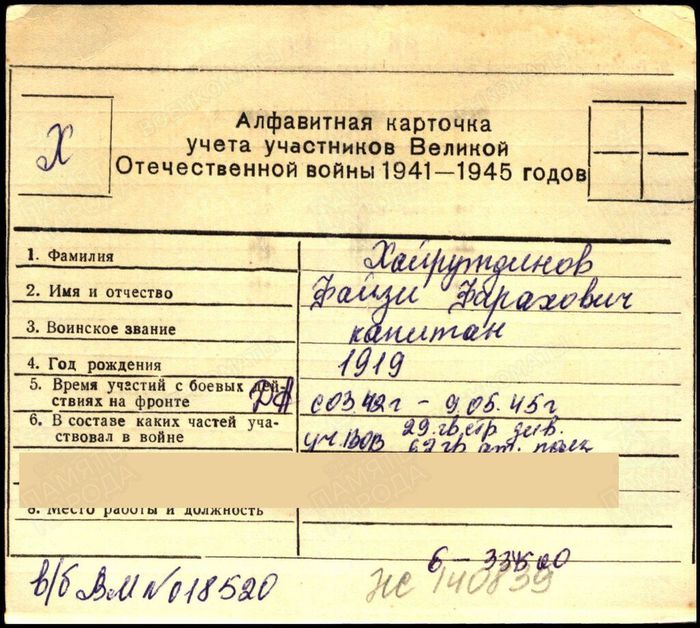 Х
Алфавитная карточка
учета участников Великой
Отечественной войны 1941—1945 годов
1. Фамилия Хайрутдинов
2. Имя и отчество Файзи Фарахович
3. Воинское звание капитан
4. Год рождения 1919
5. Время участий с боевых дей-
ствиях на фронте ДА с 03.42 г - 9.05.45 г
6. В составе каких частей уча-
ствовал в войне уч. ВОВ 29. гв. стр. див.
62 гв. ат. полк
8. Место работы и должность
6 - 33
в/б ВМ № 018520
НС 140839